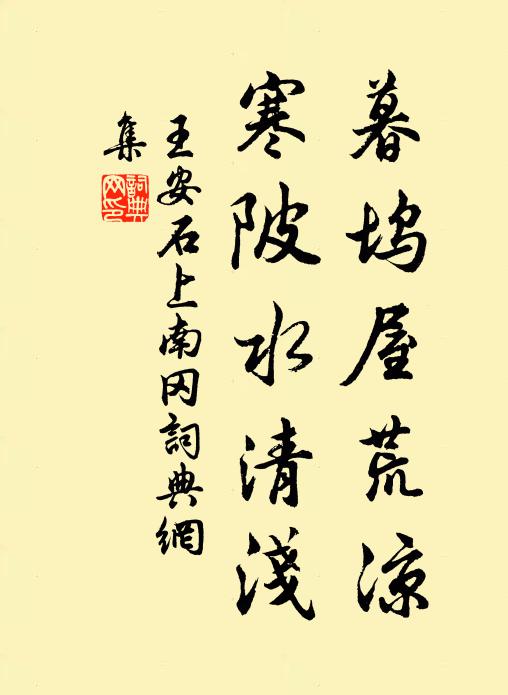 暮坞屋荒凉
寒陂水清淺
王安石上南冈詞典網
集
詞典
网印